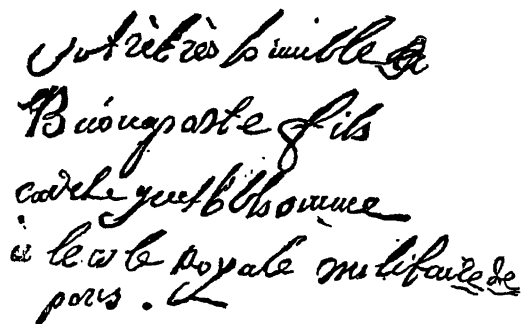 votre très humble
Buonaparte fils
cadet gentilhomme
à lecole royale militaire de
paris.